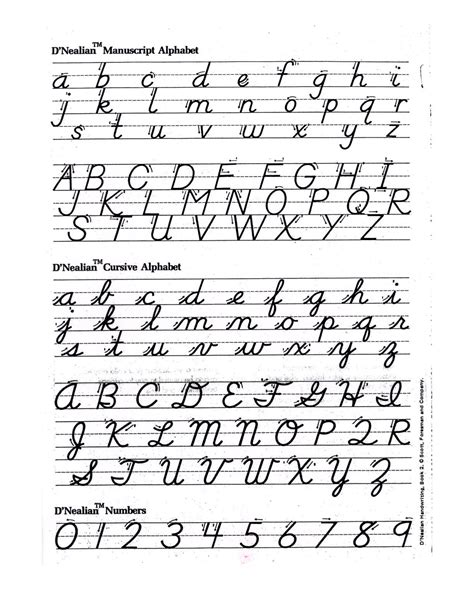 D'Nealian™ Manuscript Alphabet
a b c d e f g h i
j k l m n o p q r
s t u v w x y z
A B C D E F G H I
J K L M N O P Q R
S T U V W X Y Z
D'Nealian™ Cursive Alphabet
a b c d e f g h i
j k l m n o p q r
s t u v w x y z
A B C D E F G H I
J K L M N O P Q R
S T U V W X Y Z
D'Nealian™ Numbers
0 1 2 3 4 5 6 7 8 9
D'Nealian Handwriting, Book 2. © Scott, Foresman and Company.